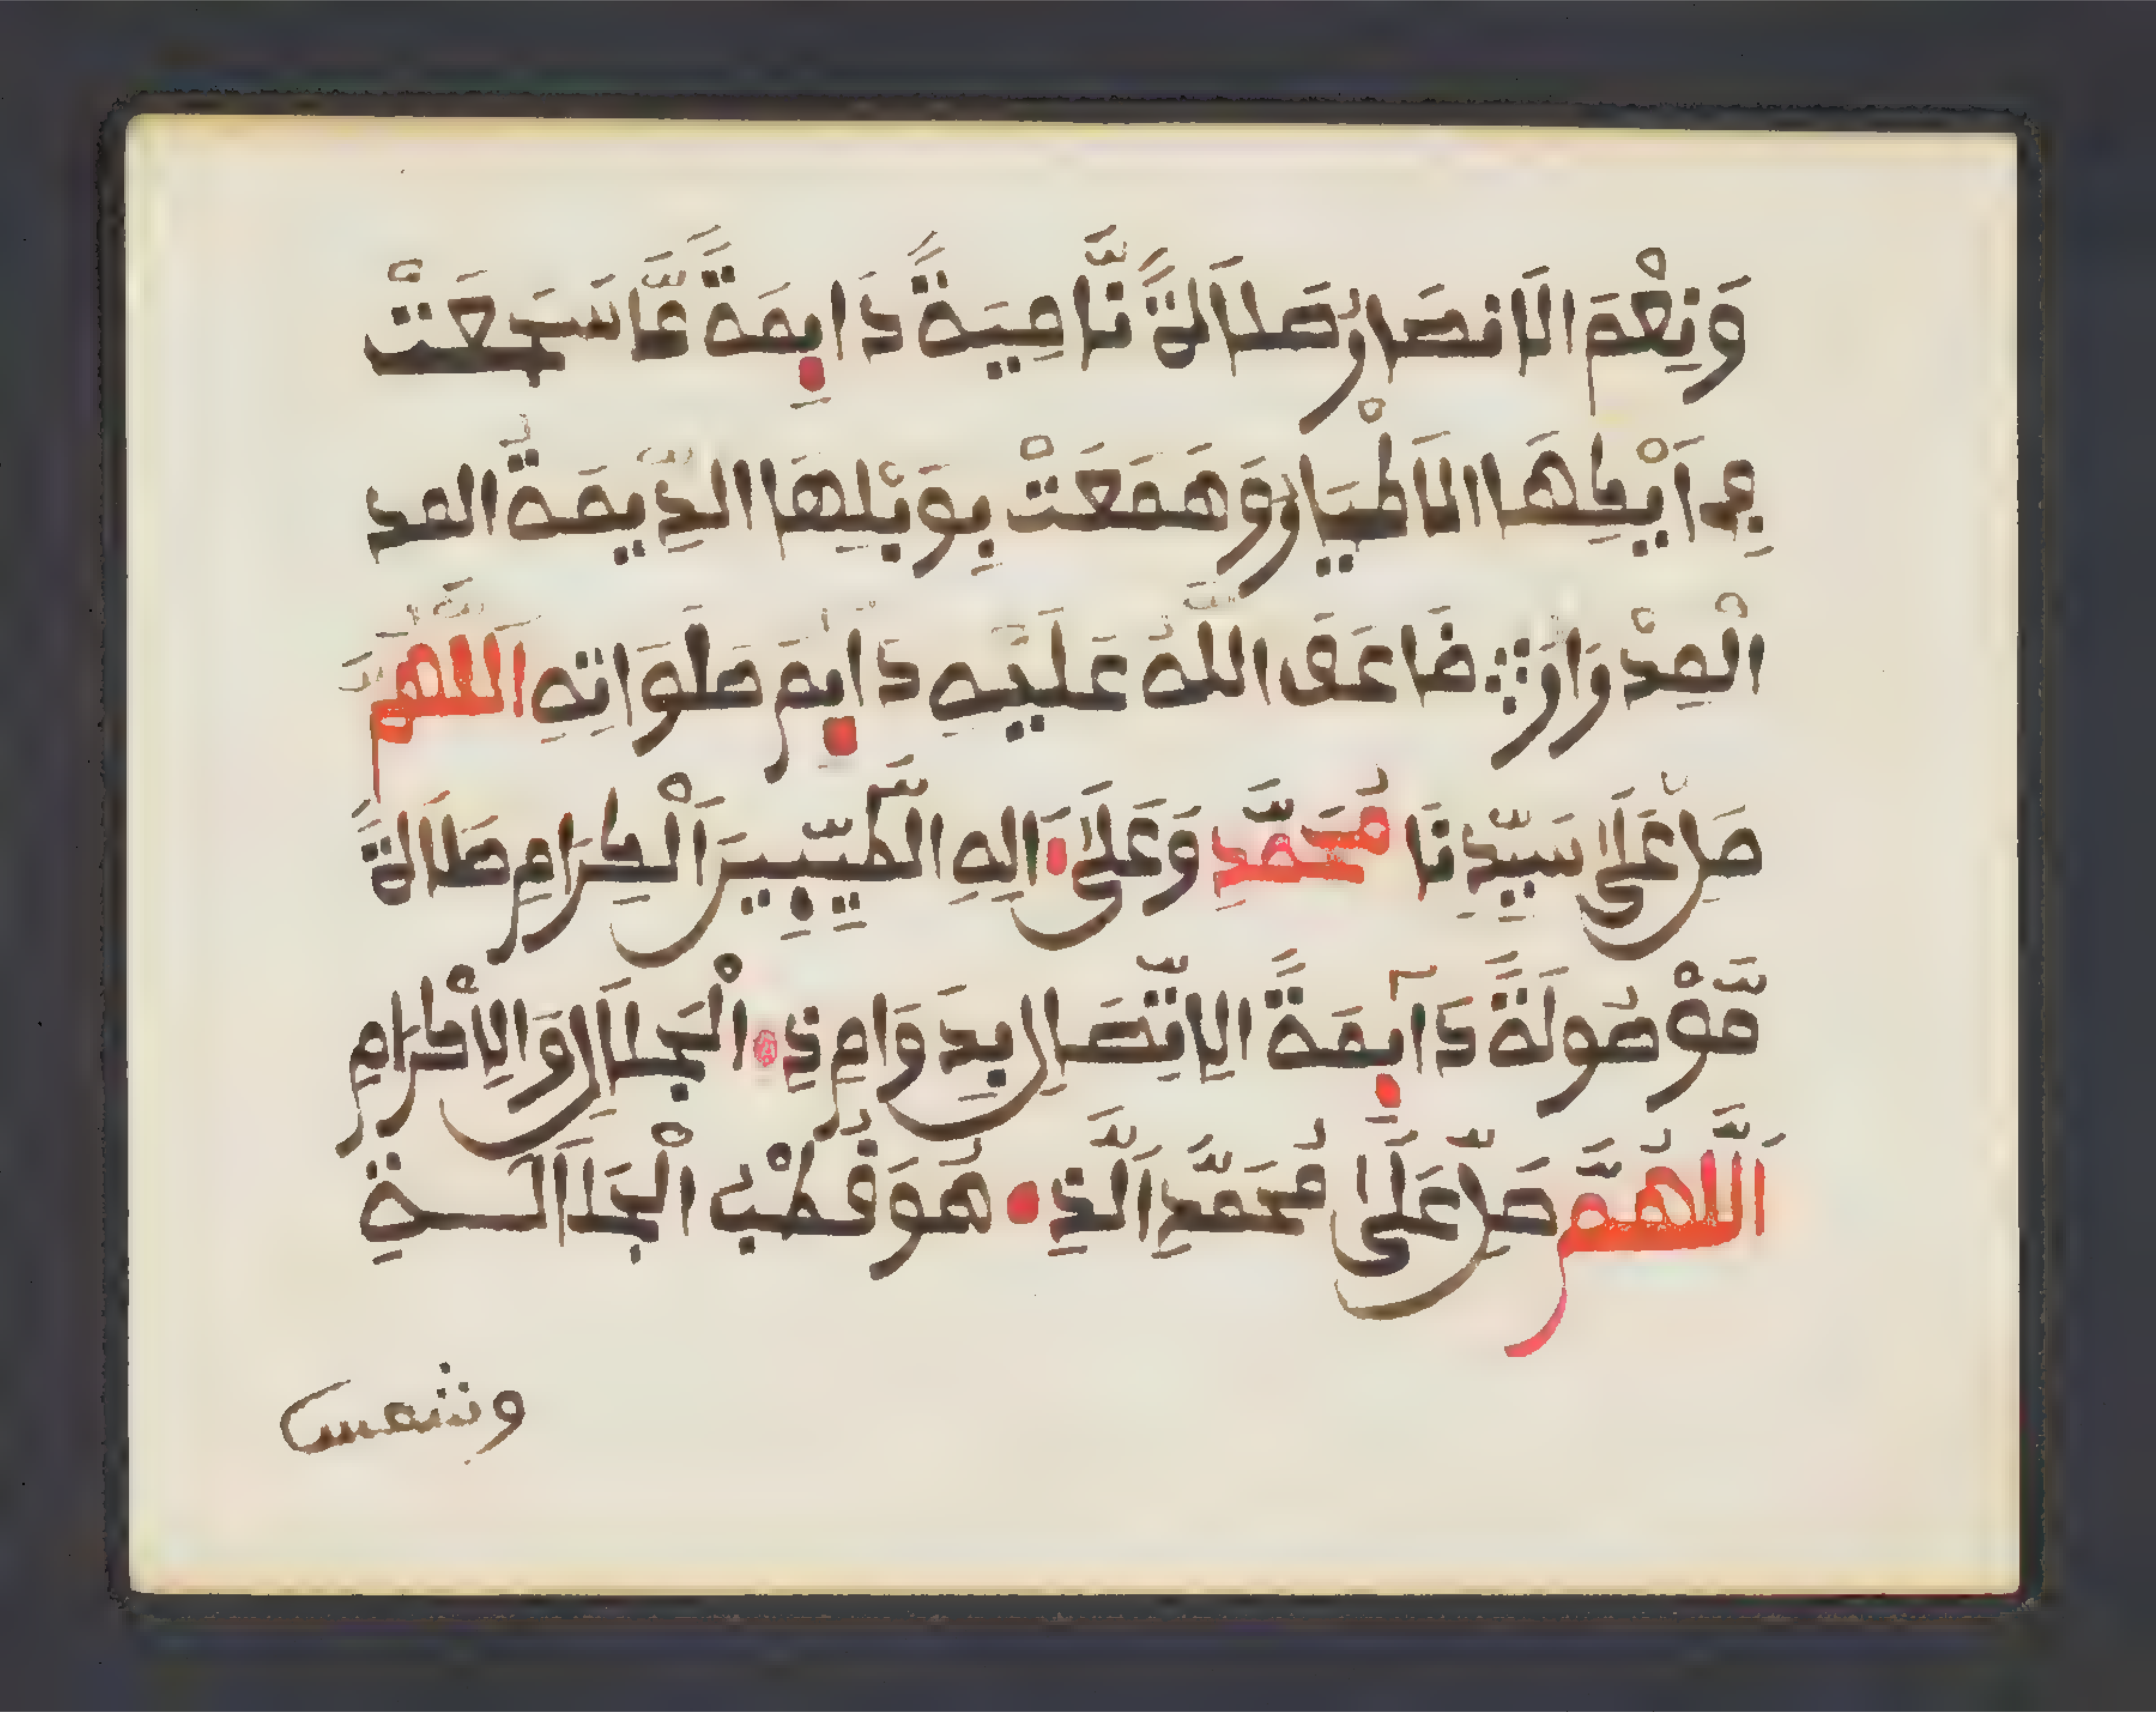 وَنِعْمَ الَانصَارُ صَلَاَةً نَّامِيَةً دَايِمَةً مَّا سَجَعَتْ
فِي اَيْكِهَا الَاطْيَارُ وَهَمَعَتْ بِوَبْلِهَا الدِّيمَةُ المد
الْمِدْرَارُ ضَاعَفَ اللهُ عَلَيْهِ دَايِمَ صَلَوَاتِهِ اَللَّهُمَّ
صَلِّ عَلَى سَيِّدِنَا مُحَمَّدٍ وَعَلَى ءَالِهِ الطَّيِّبِينَ الْكِرَامِ صَلَاَةً
مَّوْصُولَةً دَآيِمَةً الِاتِّصَالِ بِدَوَامِ ذِي الْجَلَالِ وَالِاكْرَامِ
اَللَّهُمَّ صَلِّ عَلَى مُحَمَّدٍ اَلَّذِي هُوَ قُطْبُ الْجَلَاَلَةِ
وشمس